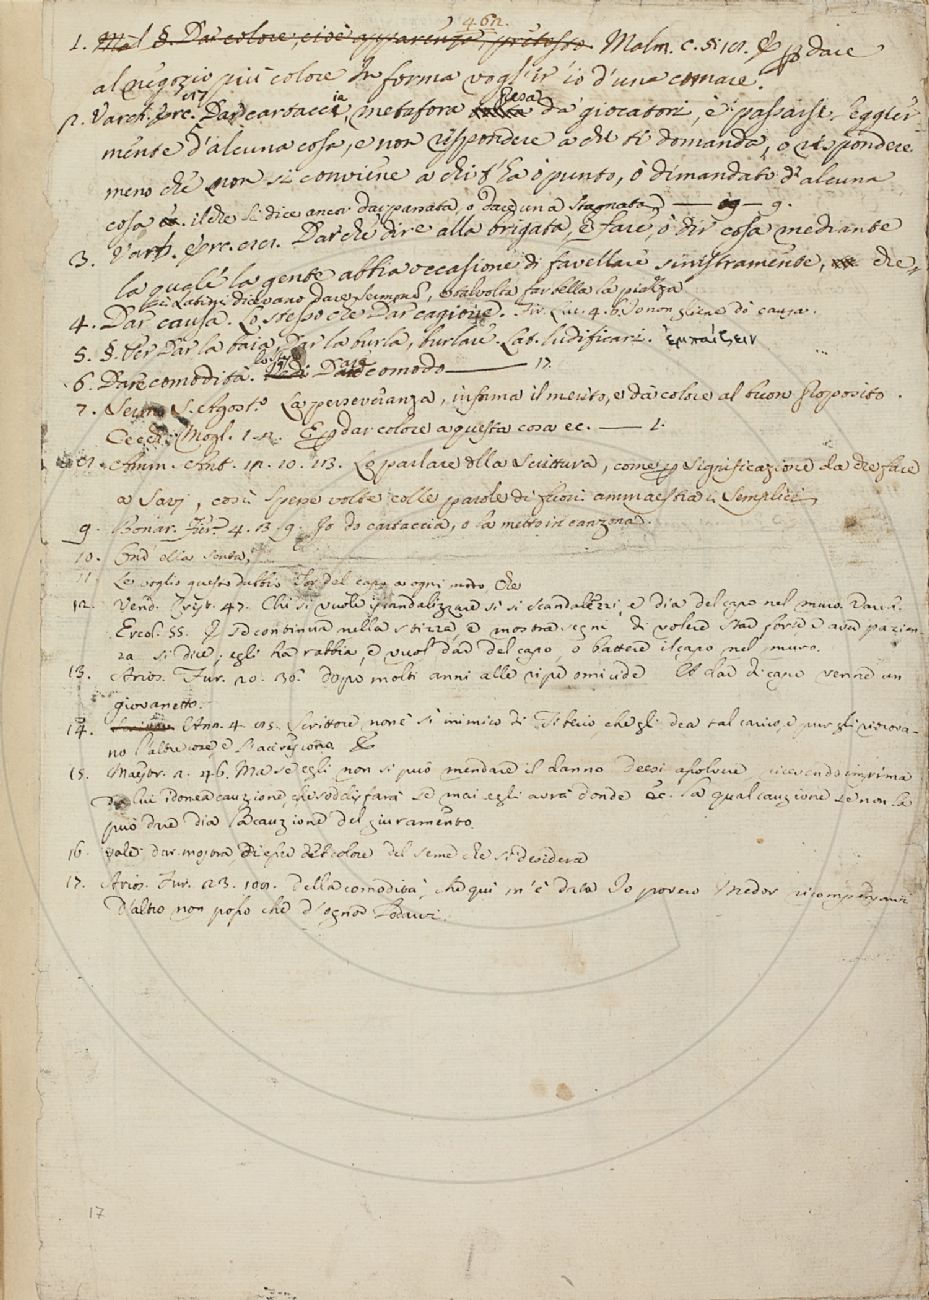 462.
1. Mal §. Dar colore, cioè apparenza, pretesto Malm. c. 5. E p dare
al negozio più colore In forma vogl'ir io d'una comare.
2. Varch. Erc. 87 Dar cartaccia, metafora presa da' giocatori, è passarsi leggier-
mente d'alcuna cosa, e non rispondere a chi ti domanda, o rispondere
meno che non si conviene a chi t'ha o punto, o dimandato d'alcuna
cosa, il che si dice ancor dar passata, o dare una stagnata — 9.
3. Varch. Erc. Dar che dire alla brigata, è fare, o dir cosa mediante
la quale la gente abbia occasione di favellare sinistramente, che
i Latini dicevano dare sermoni, e talvolta far bella la piazza
4. Dar causa. Lo stesso che Dar cagione. Fir. Luc. 4. 6. Io non gliene do causa.
5. §. Per Dar la baia, Dar la burla, burlare. Lat. ludificari. ἐμπαίζειν
6. Dare comodità. Lo stesso Dare comodo — 17.
7. S. Agost.º La perseveranza, informa il merito, e dà colore al buon proposito.
Cecch. Mogl. 1. E p dar colore a questa cosa ec. — 1.
Amm. Ant. 10. 113. Lo parlare della scrittura, come p significazione dà che fare
a Savj, così spesse volte colle parole di fuori ammaestra i Semplici,
9. Buonar. Fier. 4. 3. 9. Io do cartaccia, o la metto in canzona.
10. Ond' ella
11. Le voglio questo dubbio Tor del capo a ogni modo
12. Vend. Crist. 47. Chi si vuole scandalizzare sì si scandalezzi, e dia del capo nel muro. Varch.
Ercol. 55. E se continua nella stizza, e mostra segni di volere star forte e aver pazien-
za si dice, egli ha rabbia, e vuol dar del capo, o battere il capo nel muro.
13. Arios. Fur. 20. 36. Dopo molti anni alle ripe omicide A dar di capo venne un
giovanetto.
14. Ann. 4. Scrittore non è sì nimico di Tiberio, che gli dea tal carico, e pur gli ritrova-
no l'altre cose, e s'accresciono. &
15. Maestr. 2. 46. Ma se egli non si può mendare il danno deesi assolvere, ricevendo imprima
da lui idonea cauzione, che soddisfarà se mai egli avrà donde &c. la qual cauzione se non la
può dare dia la cauzione del giuramento.
16. vale dar mostra di esser del colore del seme che si desidera
17. Arios. Fur. 23. Della comodità, che qui m'è data Io povero Medor ricompensarvi
D'altro non posso che d'ognor lodarvi.
17